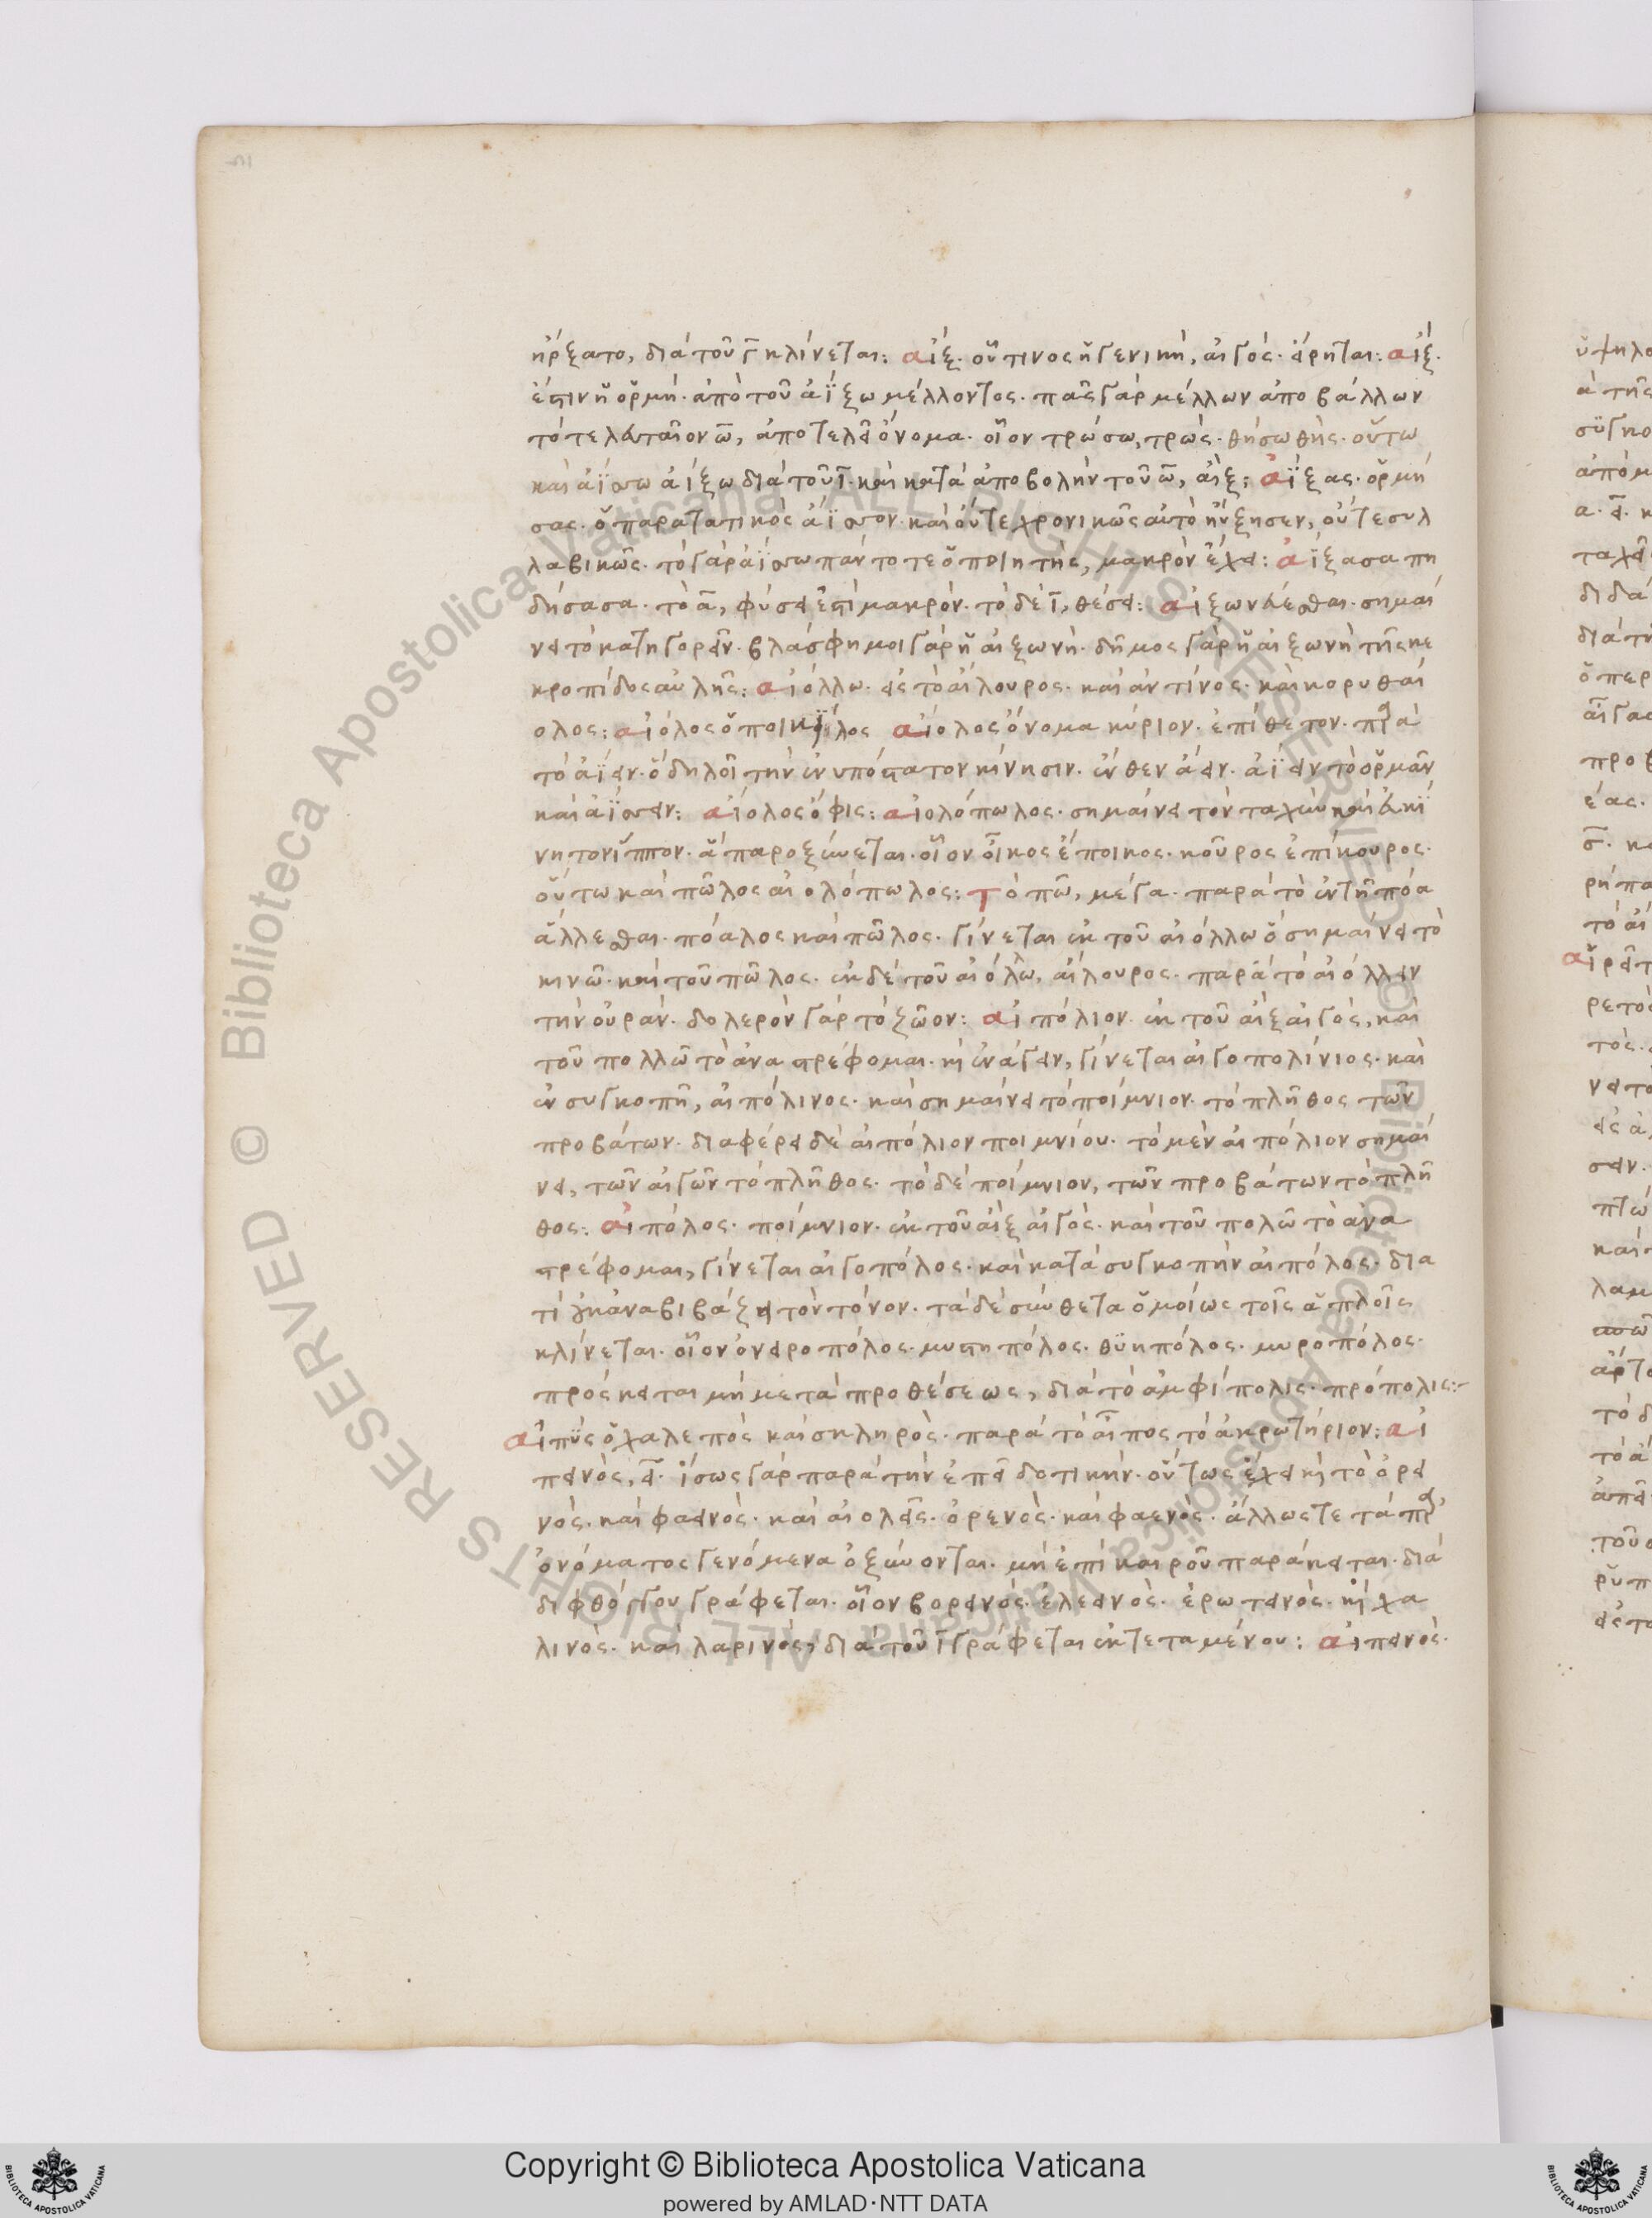 ήρξατο, διὰ τοῦ γ̄ κλίνεται: αἴξ. οὗτινος ἡ γενικὴ, αἰγός. εἴρηται: αἴξ.
ἐστιν ἡ ὁρμή. ἀπὸ τοῦ ἀΐξω μέλλοντος. πᾶς γὰρ μέλλων ἀποβάλλων
τὸ τελευταῖον ω̄, ἀποτελεῖ ὄνομα. οἷον τρώσω, τρώς. θήσω θής. οὕτω
καὶ ἀΐσσω ἀίξω διὰ τοῦ ῑ. καὶ κατὰ ἀποβολὴν τοῦ ω̄, ἄιξ: ἀΐξας. ὁρμή
σας. ὁ παρατατικὸς ἀΐσσον. καὶ οὔτε χρονικῶς αὐτὸ ηὔξησεν, οὔτε συλ
λαβικῶς. τὸ γὰρ ἀΐσσω πάντοτε ὁ ποιητὴς, μακρὸν ἔχει: ἀΐξασα πη
δήσασα. τὸ ᾱ, φύσει ἐστὶ μακρόν. τὸ δὲ ῑ, θέσει: αἰξωνεύεσθαι. σημαί
νει τὸ κατηγορεῖν. βλάσφημοι γὰρ ἡ αἰξωνή. δῆμος γὰρ ἡ αἰξωνὴ τῆς κε
κροπίδος αὐλῆς: αἰόλλω. εἰς τὸ αἴλουρος. καὶ ἀντίνος. καὶ κορυθαί
ολος: αἰόλος ὁ ποικίλος αἴολος ὄνομα κύριον. ἐπίθετον. παρὰ
τὸ ἀΐειν. ὃ δηλοῖ τὴν ἐνυπόστατον κίνησιν. ἔνθεν ἄειν. ἀΐειν τὸ ὁρμᾶν
καὶ ἀΐσσειν: αἴολος ὄφις: αἰολόπωλος. σημαίνει τὸν ταχὺν καὶ εὐκί
νητον ἵππον. ἃ παροξύνεται. οἷον οἶκος ἔποικος. κοῦρος ἐπίκουρος.
οὕτω καὶ πῶλος αἰολόπωλος: Τὸ πω̄, μέγα. παρὰ τὸ ἐν τῇ πόα
ἅλλεσθαι. πόαλος καὶ πῶλος. γίνεται ἐκ τοῦ αἰόλλω ὃ σημαίνει τὸ
κινῶ. καὶ τοῦ πῶλος. ἐκ δὲ τοῦ αἰόλλω, αἴλουρος. παρὰ τὸ αἰόλλειν
τὴν οὐράν. δολερὸν γὰρ τὸ ζῶον: αἰπόλιον. ἐκ τοῦ αἲξ αἰγός, καὶ
τοῦ πολλῶ τὸ ἀναστρέφομαι. καὶ ἐνάγειν, γίνεται αἰγοπολίνιος. καὶ
ἐν συγκοπῇ, αἰπόλινος. καὶ σημαίνει τὸ ποίμνιον. τὸ πλῆθος τῶν
προβάτων. διαφέρει δὲ αἰπόλιον ποιμνίου. τὸ μὲν αἰπόλιον σημαί
νει, τῶν αἰγῶν τὸ πλῆθος. τὸ δὲ ποίμνιον, τῶν προβάτων τὸ πλῆ
θος: αἰπόλος. ποίμνιον. ἐκ τοῦ αἲξ αἰγός. καὶ τοῦ πολῶ τὸ ανα
στρέφομαι, γίνεται αἰγοπόλος. καὶ κατὰ συγκοπὴν αἰπόλος. δια
τί οὐκ ἀναβιβάζει τὸν τόνον. τὰ δὲ σύνθετα ὁμοίως τοῖς ἁπλοῖς
κλίνεται. οἷον ὀνειροπόλος. μυστηπόλος. θυηπόλος. μυροπόλος.
πρόσκειται μὴ μετὰ προθέσεως, διὰ τὸ ἀμφίπολις. πρόπολις:-
αἰπὺς ὁ χαλεπὸς καὶ σκληρὸς. παρὰ τὸ αἶπος τὸ ἀκρωτήριον: αἰ
πεινὸς, ει. ἴσως γὰρ παρὰ τὴν ἔπει δοτικήν. οὕτως ἔχει καὶ τὸ ὀρει
νὸς. καὶ φαεινὸς. καὶ αἰολεῖς. ὀρενὸς. καὶ φαενὸς. ἄλλως τε τὰ παρ'
ὀνόματος γενόμενα ὀξύνονται. μὴ ἐπὶ καιροῦ παράκειται. διὰ
διφθόγγου γράφεται. οἷον βορεινός. ἐλεεινὸς. ἐρωτεινὸς. καὶ χα
λινὸς. καὶ λαρινὸς, διὰ τοῦ ῑ γράφεται ἐκτεταμένου: αἰπεινός.
Copyright © Biblioteca Apostolica Vaticana
powered by AMLAD·NTT DATA